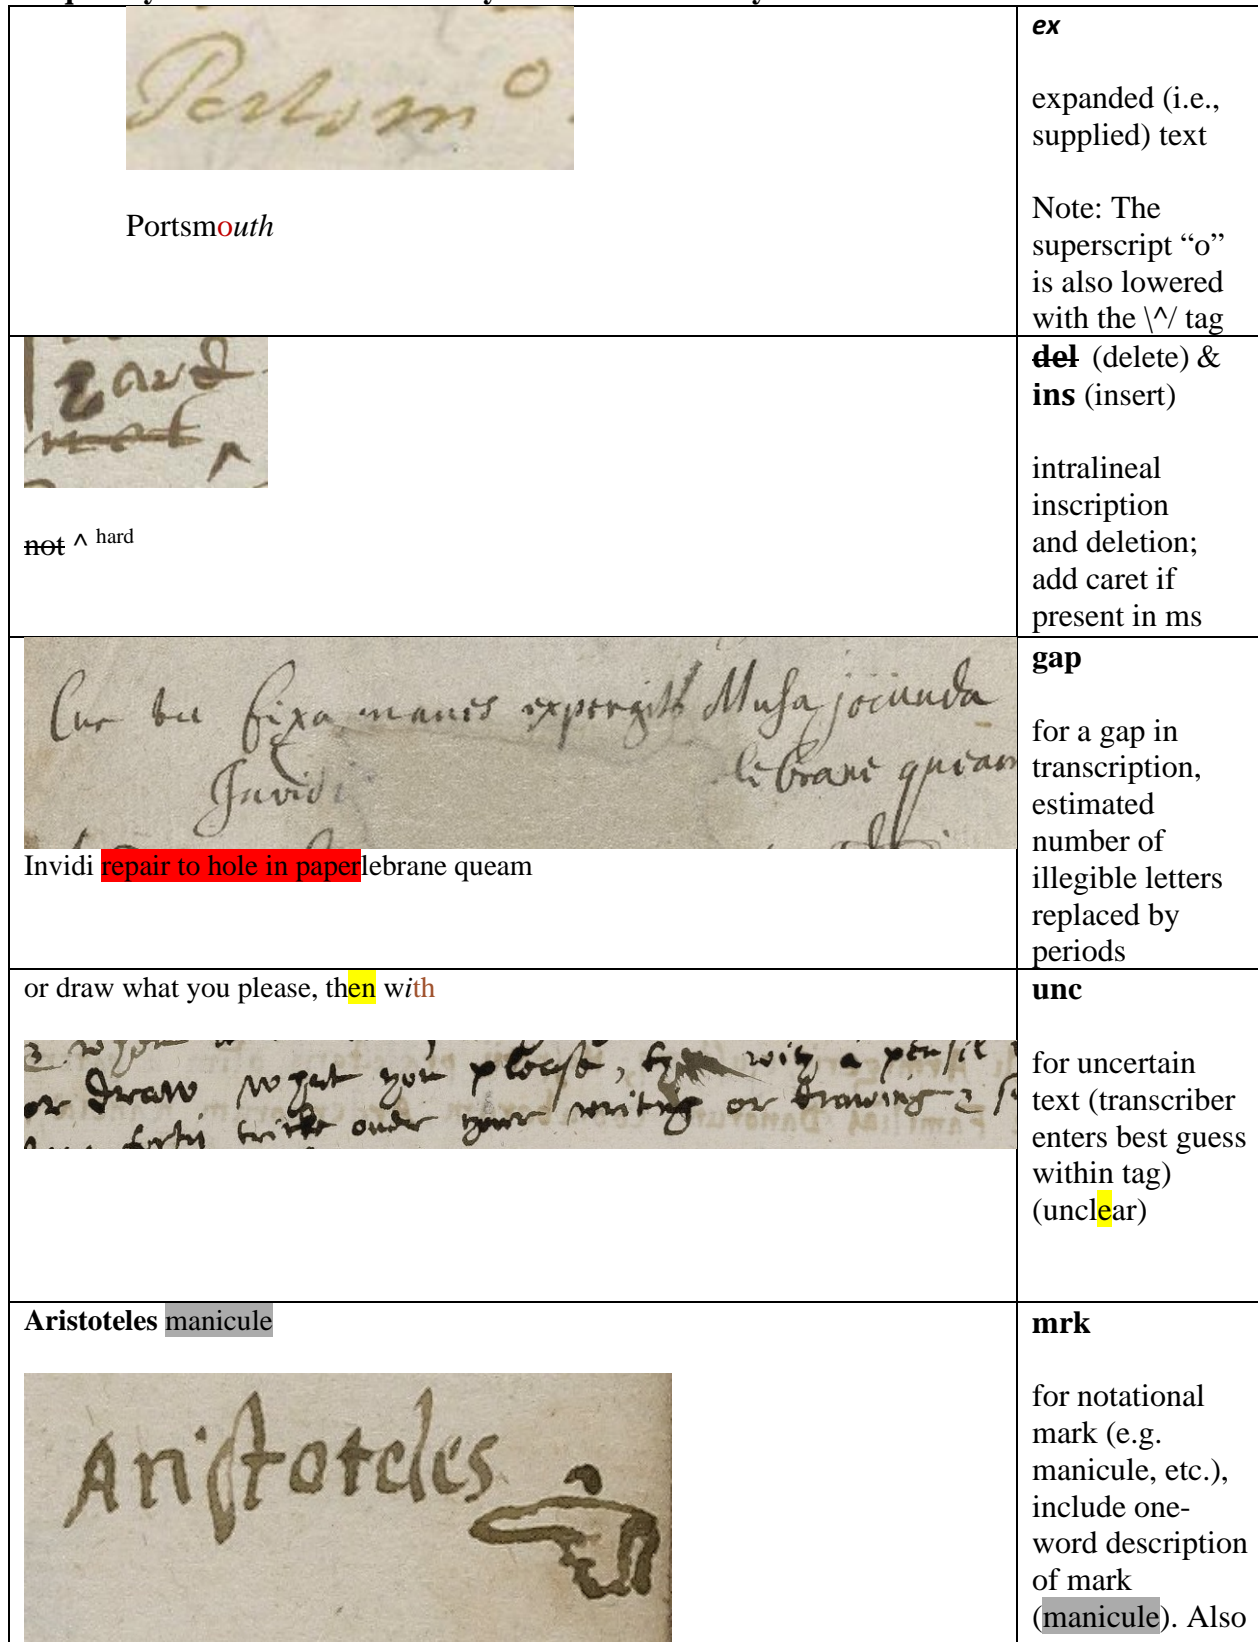 Portsmº
Portsmouth
ex
expanded (i.e.,
supplied) text
Note: The
superscript “o”
is also lowered
with the \^/ tag
hard
not ^
not ^ hard
del (delete) &
ins (insert)
intralineal
inscription
and deletion;
add caret if
present in ms
fixa manes Musa jocunda
Invidi lebrane queam
Invidi repair to hole in paperlebrane queam
gap
for a gap in
transcription,
estimated
number of
illegible letters
replaced by
periods
or draw what you please, then with
or draw what you please, with a pensil
your writing or drawing
unc
for uncertain
text (transcriber
enters best guess
within tag)
(unclear)
Aristoteles manicule
Aristoteles
mrk
for notational
mark (e.g.
manicule, etc.),
include one-
word description
of mark
(manicule). Also